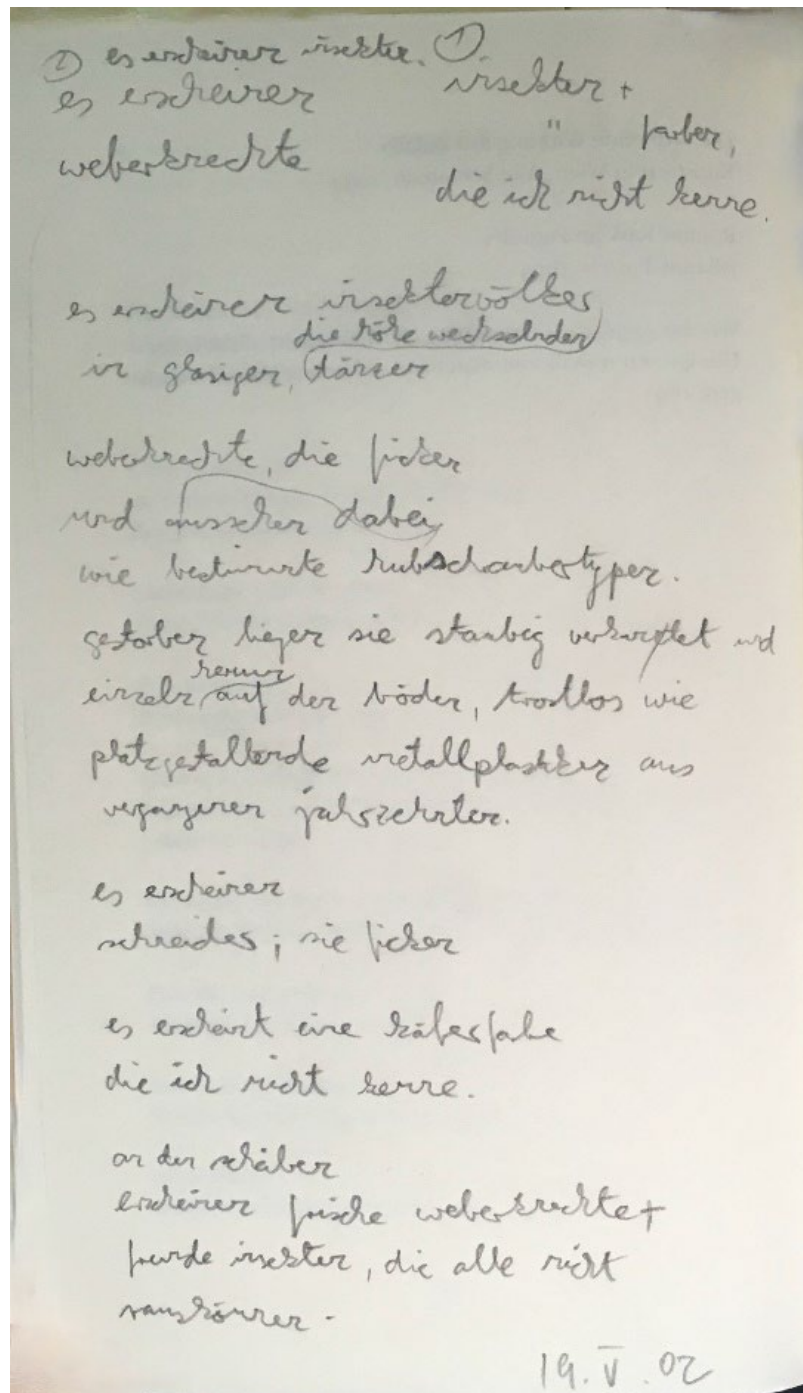 ② es erscheinen insekten. ①
es erscheinen insekten +
" farben,
weberknechte
die ich nicht kenne.
es erscheinen insektenvölker
die höhe wechselnden
in glasigen, tänzen
weberknechte, die ficken
und aussehen dabei
wie bestimmte hubschraubertypen.
gestorben liegen sie staubig verknotet und
herum
einzeln auf den böden, trostlos wie
platzgestaltende metallplastiken aus
vergangenen jahrzehnten.
es erscheinen
schneider; sie ficken
es erscheint eine käferfarbe
die ich nicht kenne.
an den scheiben
erscheinen frische weberknechte +
fremde insekten, die alle nicht
rauskönnen.
19. V. 02